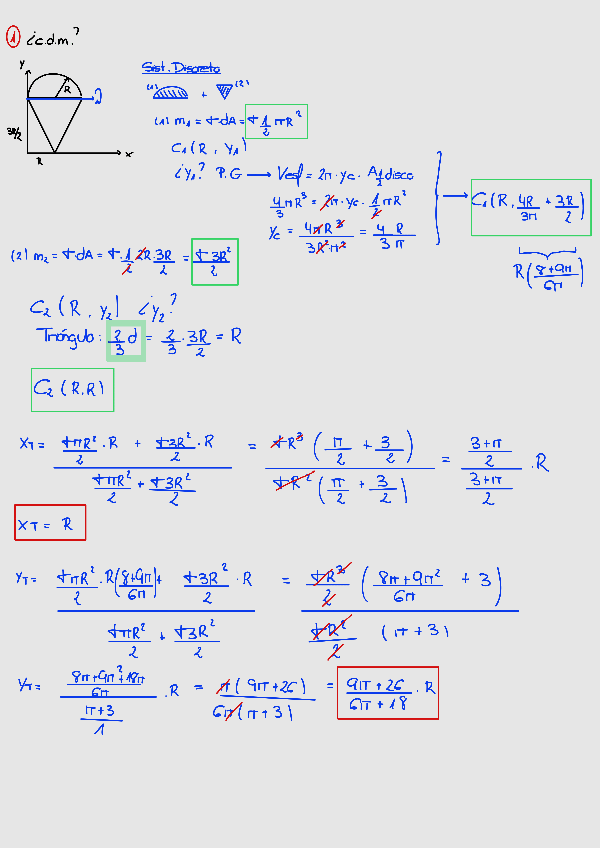 ① ¿c.d.m.?
y
R
2
3R/2
R
x
Sist. Discreto
(1) + (2)
(1) m₁ = σ·dA = σ 1/2 πR²
C₁(R, y₁)
¿y₁? P.G → Vesf = 2π·yc·A1/2disco
4/3 πR³ = 2π·yc·1/2 πR²
yc = 4πR³/3R²π² = 4/3 R/π
C₁(R, 4R/3π + 3R/2)
R(8+9π/6π)
(2) m₂ = σ·dA = σ·1/2·2R·3R/2 = σ3R²/2
C₂(R, y₂) ¿y₂?
Triángulo: 2/3 d = 2/3·3R/2 = R
C₂(R,R)
XT = (σπR²/2·R + σ3R²/2·R)/(σπR²/2 + σ3R²/2) = σR³(π/2 + 3/2)/σR²(π/2 + 3/2) = (3+π/2)/(3+π/2)·R
XT = R
YT = (σπR²/2·R(8+9π/6π) + σ3R²/2·R)/(σπR²/2 + σ3R²/2) = σR³/2(8π+9π²/6π + 3)/σR²/2(π+3)
YT = (8π+9π²+18π/6π)/(π+3/1)·R = π(9π+26)/6π(π+3) = 9π+26/6π+18·R